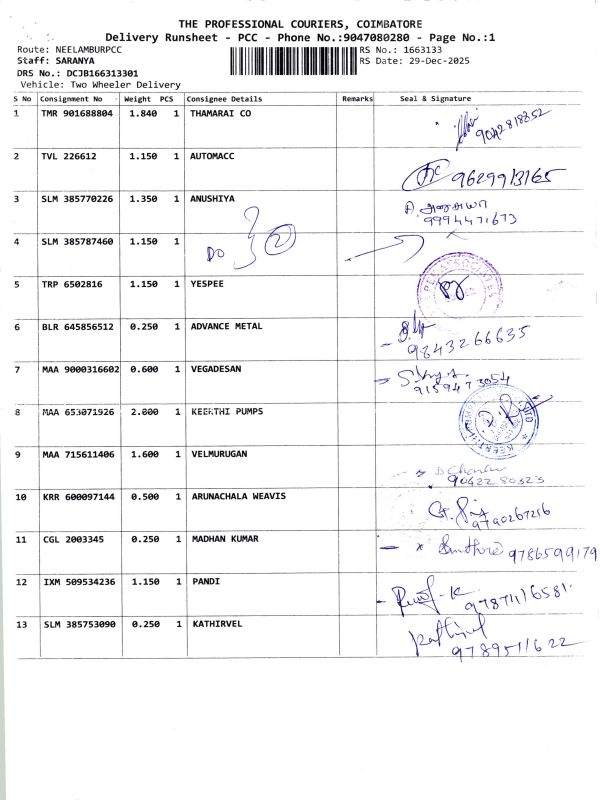 THE PROFESSIONAL COURIERS, COIMBATORE
Delivery Runsheet - PCC - Phone No.:9047080280 - Page No.:1
Route: NEELAMBURPCC RS No.: 1663133
Staff: SARANYA RS Date: 29-Dec-2025
DRS No.: DCJB166313301
Vehicle: Two Wheeler Delivery
S No Consignment No Weight PCS Consignee Details Remarks Seal & Signature
1 TMR 901688804 1.840 1 THAMARAI CO
2 TVL 226612 1.150 1 AUTOMACC
3 SLM 385770226 1.350 1 ANUSHIYA
9994471673
4 SLM 385787460 1.150 1
DO 2
5 TRP 6502816 1.150 1 YESPEE
6 BLR 645856512 0.250 1 ADVANCE METAL
9843266635
7 MAA 9000316602 0.600 1 VEGADESAN
9159473054
8 MAA 653071926 2.000 1 KEERTHI PUMPS
9 MAA 715611406 1.600 1 VELMURUGAN
9042280323
10 KRR 600097144 0.500 1 ARUNACHALA WEAVIS
9790267216
11 CGL 2003345 0.250 1 MADHAN KUMAR
9786599179
12 IXM 509534236 1.150 1 PANDI
13 SLM 385753090 0.250 1 KATHIRVEL
Kathirvel
9789511622